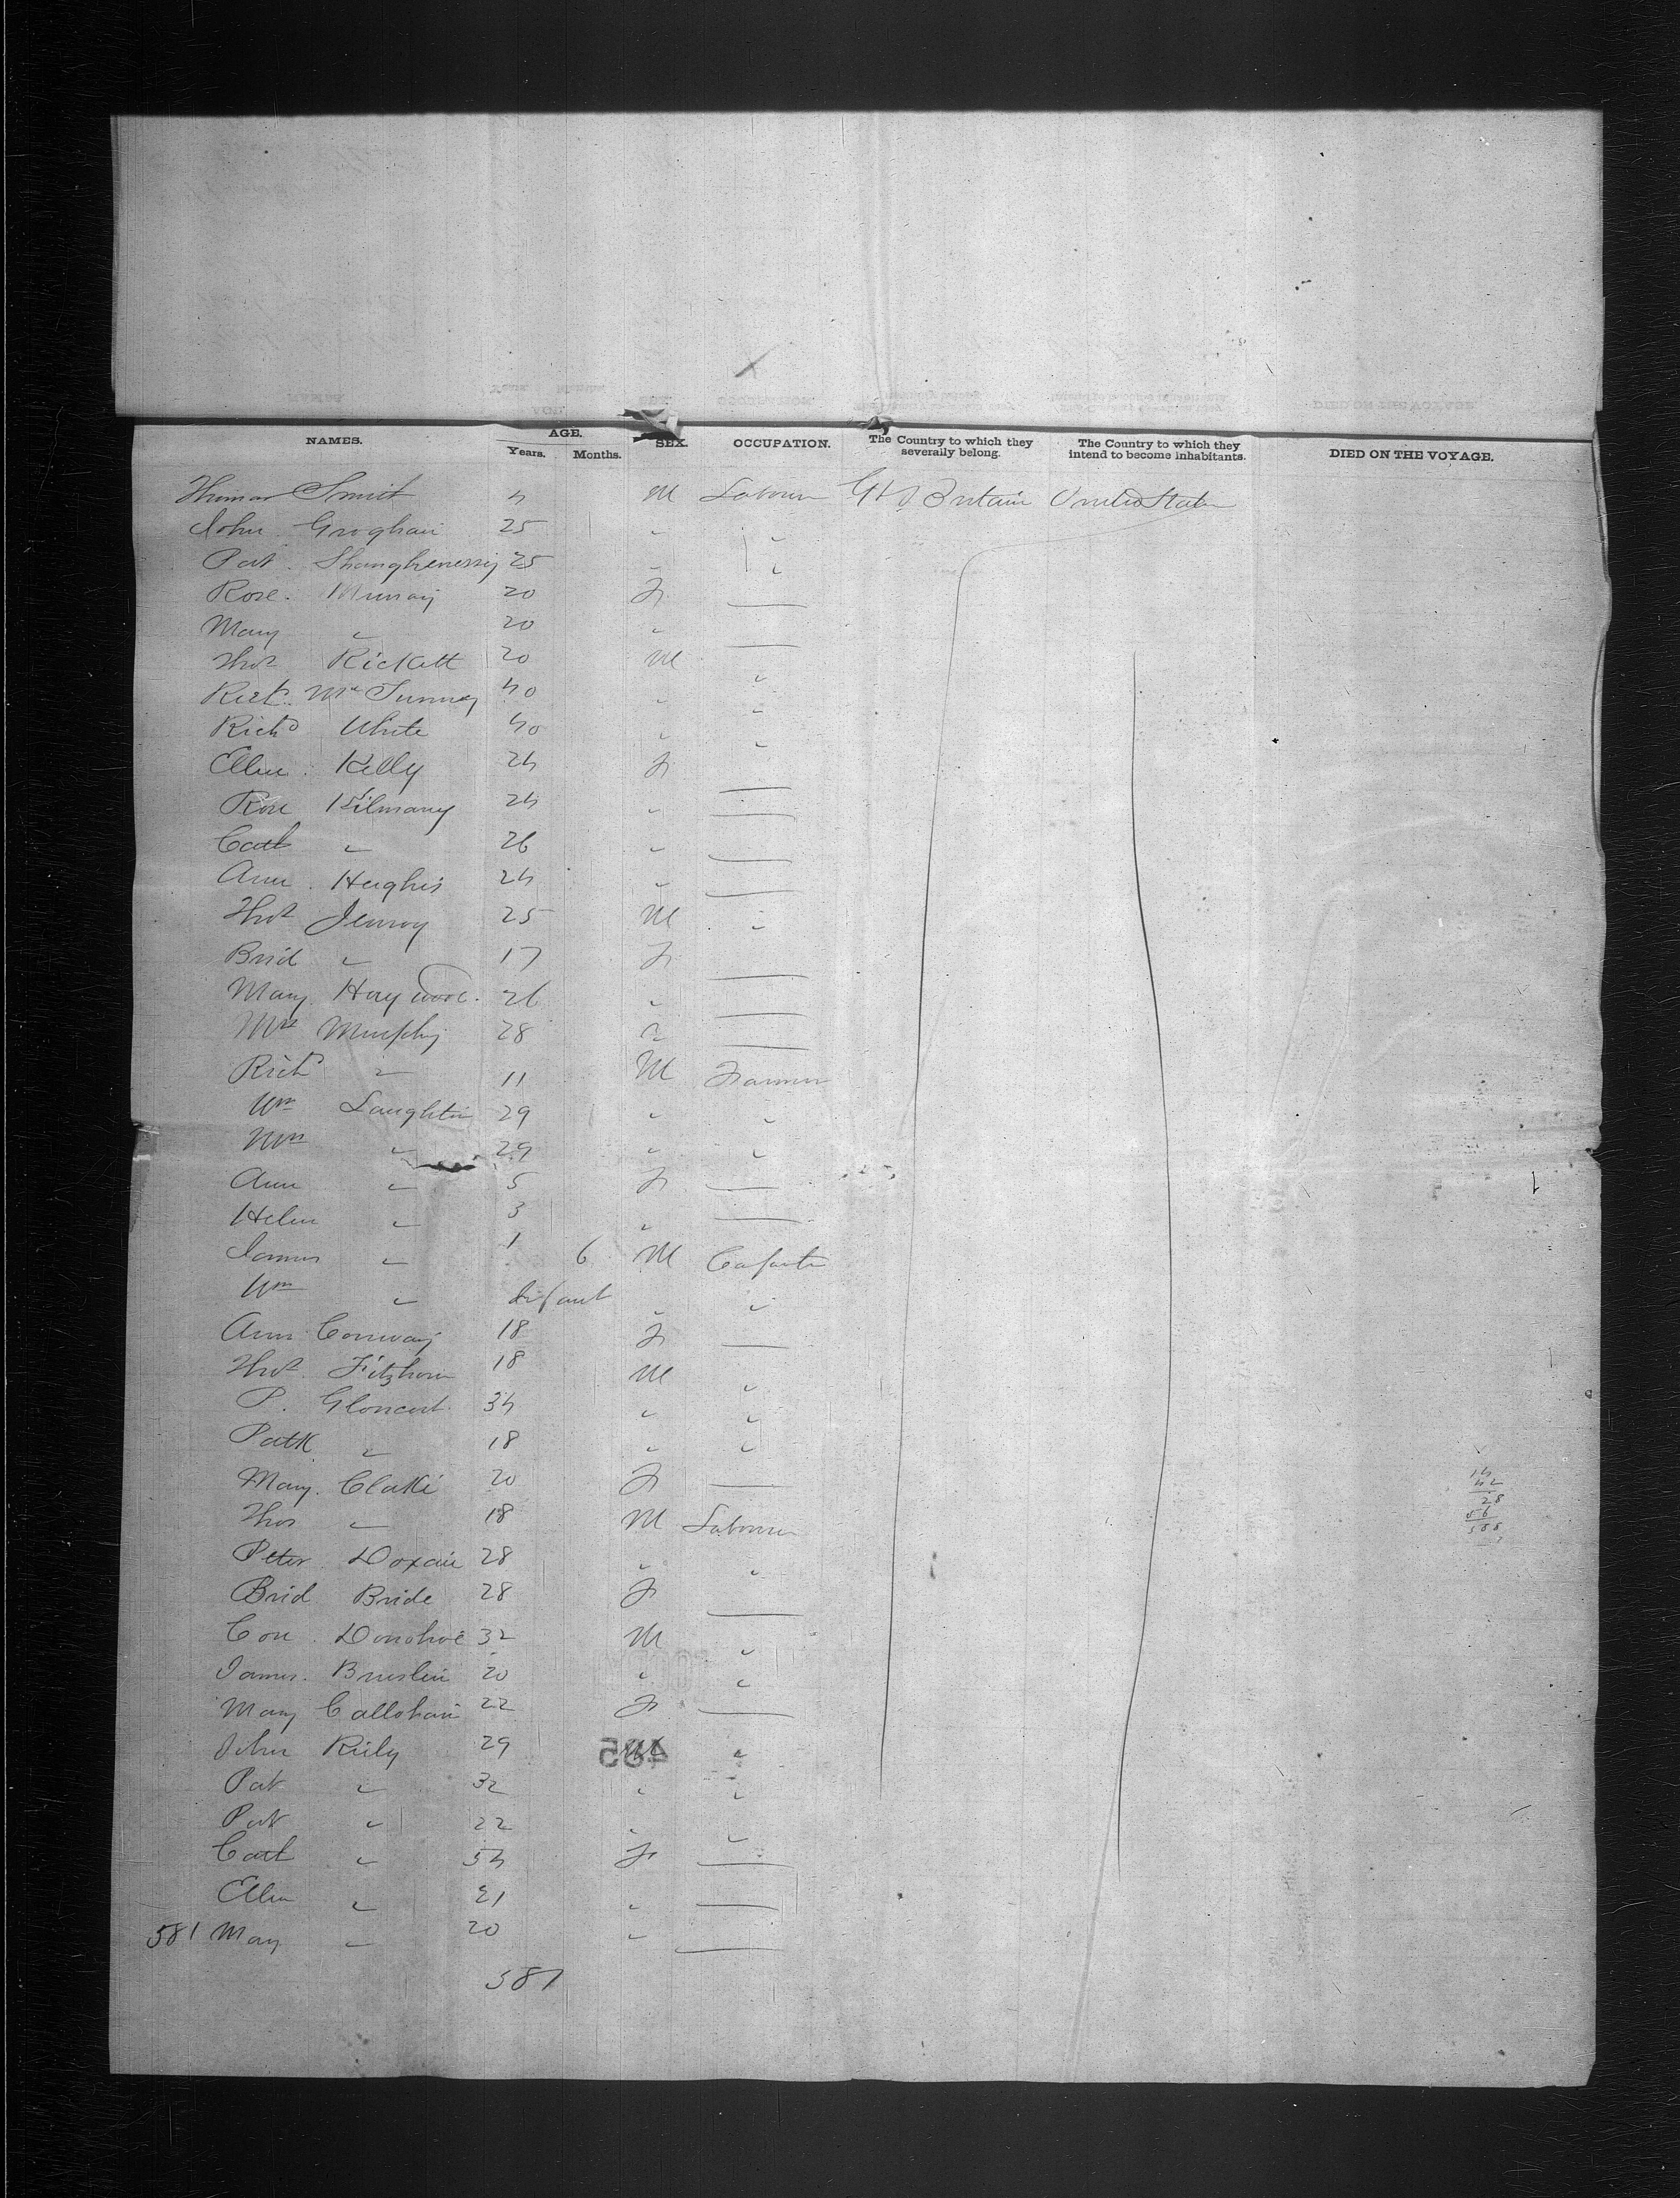 NAMES. AGE. Years. Months. SEX. OCCUPATION. The Country to which they severally belong. The Country to which they intend to become inhabitants. DIED ON THE VOYAGE.
Thomas Smit 4 M Labourer Gt Britain United States
John Groghan 25 " "
Pat. Shanghenessy 25 " "
Rose. Murray 20 F —
Mary " 20 " —
Thos Rickett 20 M "
40 " "
Richd White 40 " "
Ellen Kelly 24 F —
Rose Kilmary 24 " —
Cath " 26 " —
Ann. Hughes 24 " —
Thos 25 M "
Brid " 17 F —
Mary. Haywood. 26 " —
Mrs Murphy 28 " —
Richd " 11 M Farmer
Wm Laughlin 29 " "
" 29 " "
Ann " 5 F —
Helen " 3 " —
James " 1 6 M
Wm " Infant " "
Ann Conway 18 F —
Thos 18 M "
P. 34 " "
Patk " 18 " "
Mary. Clarke 20 F —
Thos " 18 M Labourer
Peter. 28 " "
Brid Bride 28 F —
Con. Donohoe 32 M "
James. Breslin 20 " "
Mary Callohan 22 F —
John Riely 29 M "
Pat " 32 " "
Pat " 22 " "
Cath " 54 F —
Ellen " 21 " —
581 Mary " 20 " —
581
485